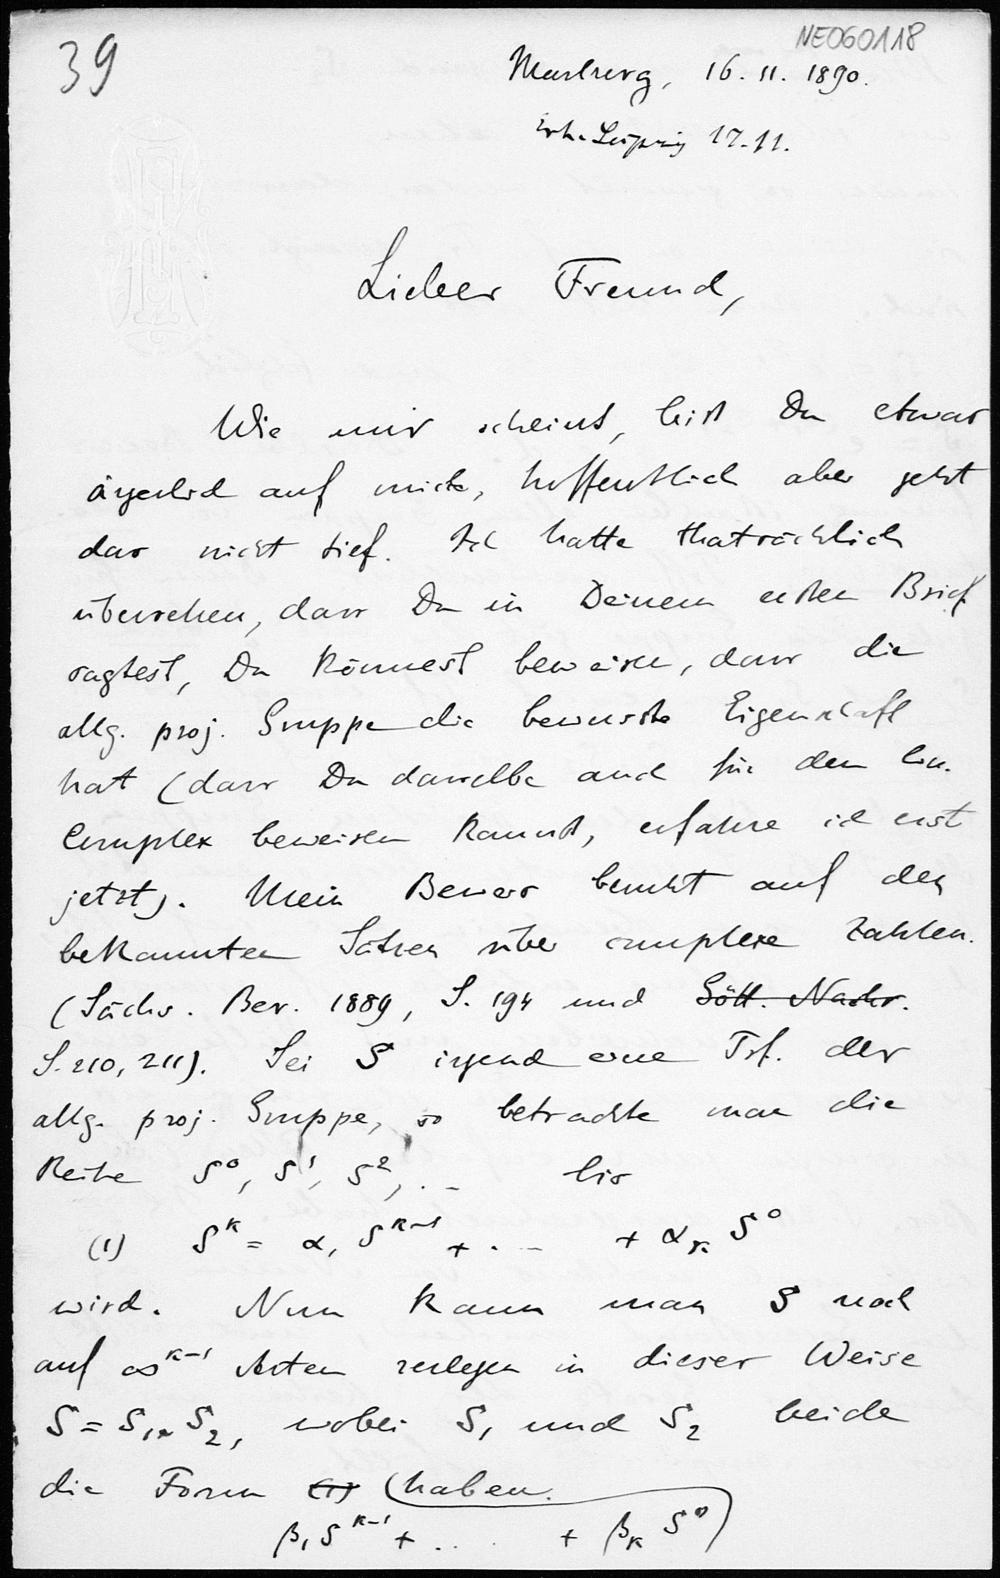 39
NE060118
Marburg, 16.11.1890.
Erh. Leipzig 17.11.
Lieber Freund,
Wie mir scheint, bist Du etwas
ärgerlich auf mich, hoffentlich aber geht
das nicht tief. Ich hatte thatsächlich
übersehen, dass Du in Deinem ersten Brief
sagtest, Du könnest beweisen, dass die
allg. proj. Gruppe die bewusste Eigenschaft
hat (dass Du dasselbe auch für den lin.
Complex beweisen kannst, erfahre ich erst
jetzt). Mein Beweis beruht auf den
bekannten Sätzen über complexe Zahlen.
(Sächs. Ber. 1889, S. 194 und Gött. Nachr.
S. 210, 211). Sei S irgend eine Trf. der
allg. proj. Gruppe, so betrachte man die
Reihe S⁰, S¹, S², .. bis
(1) Sᵏ = α₁ Sᵏ⁻¹ + ... + αₖ S⁰
wird. Nun kann man S noch
auf ∞ᵏ⁻¹ Arten zerlegen in dieser Weise
S = S₁ S₂, wobei S₁ und S₂ beide
die Form (1) haben.
β₁ Sᵏ⁻¹ + ... + βₖ S⁰)